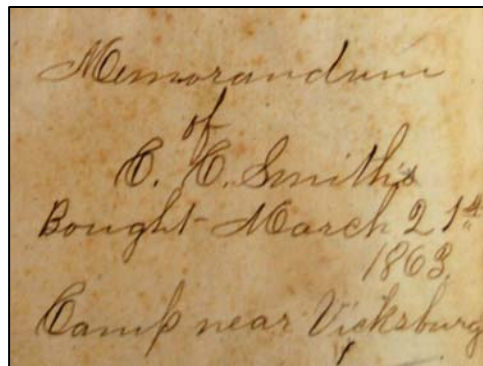 Memorandum
of
E. E. Smith's
Bought March 21st
1863.
Camp near Vicksburg